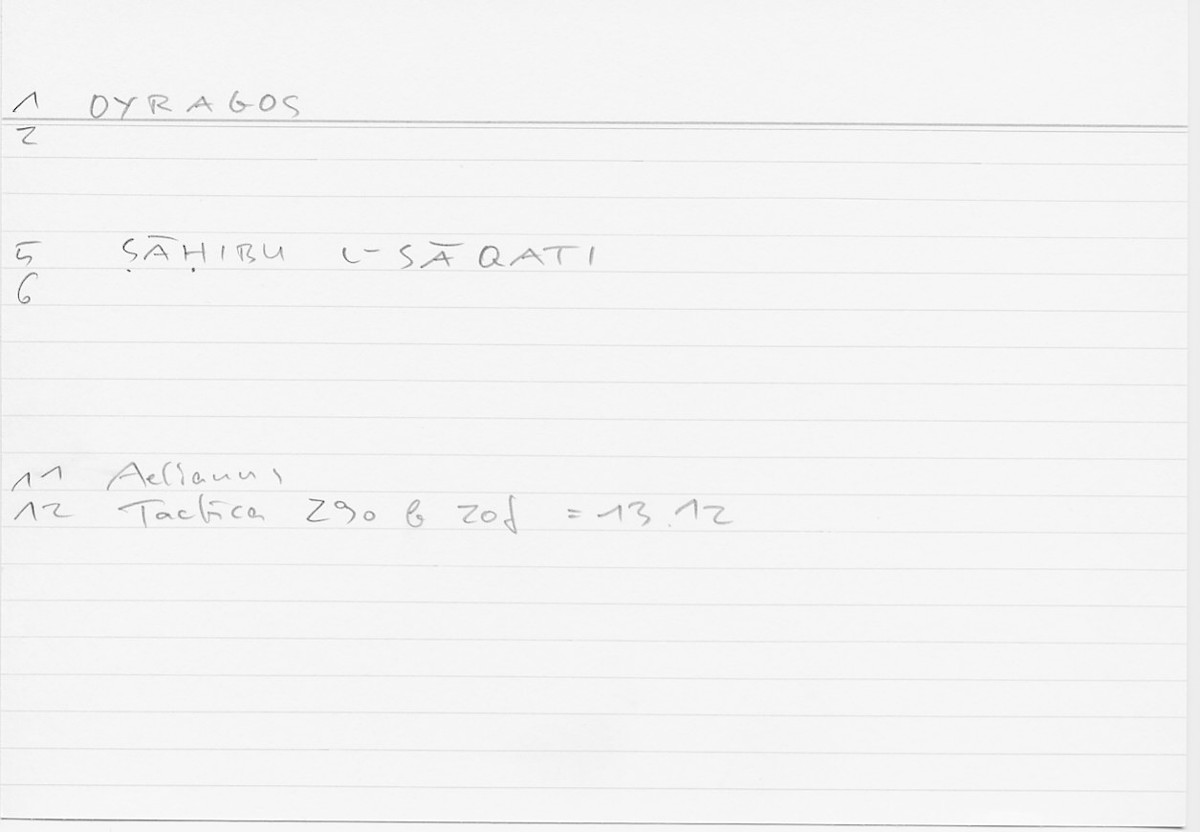 1 OYRAGOS
2
5 ṢĀḤIBU L-SĀQATI
6
11 Aelianus
12 Tactica 290 b 20f = 13.12